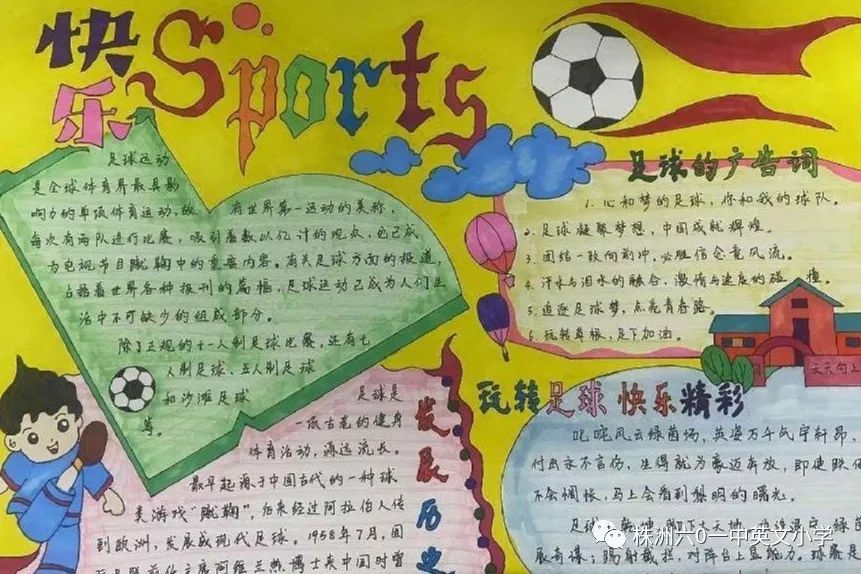 快乐 Sports
足球运动
是全球体育界最具影
响力的单项体育运动,故 有世界第一运动的美称。
每次有两队进行比赛,吸引着数以亿计的观众,它已成
为电视节目 中的重要内容。有关足球方面的报道,
占据着世界各种报刊的篇幅,足球运动已成为人们生
活中不可缺少的组成部分。
除了正规的十一人制足球比赛,还有七
人制足球、五人制足球
和沙滩足球
等。
足球的广告词
1. 心和梦的足球,你和我的球队。
2. 足球凝聚梦想,中国成就辉煌。
3. 团结一致向前冲,必胜信念竟风流。
4. 汗水与泪水的融合,激情与速度的碰撞。
5. 追逐足球梦,点亮青春路。
6. 玩转草根,足下加油。
天天向上
发展历史
足球是
一项古老的健身
体育活动,源远流长。
最早起源于中国古代的一种球
类游戏“蹴鞠”,后来经过阿拉伯人传
到欧洲,发展成现代足球。1958年7月,国
博士来中国时曾
玩转足球 快乐精彩
叱咤风云绿茵场,英姿万千气宇轩昂,
付出永不言伤,生得就为豪迈奔放,即使跌倒
不会惆怅,马上会看到黎明的曙光。
株洲六0一中英文小学